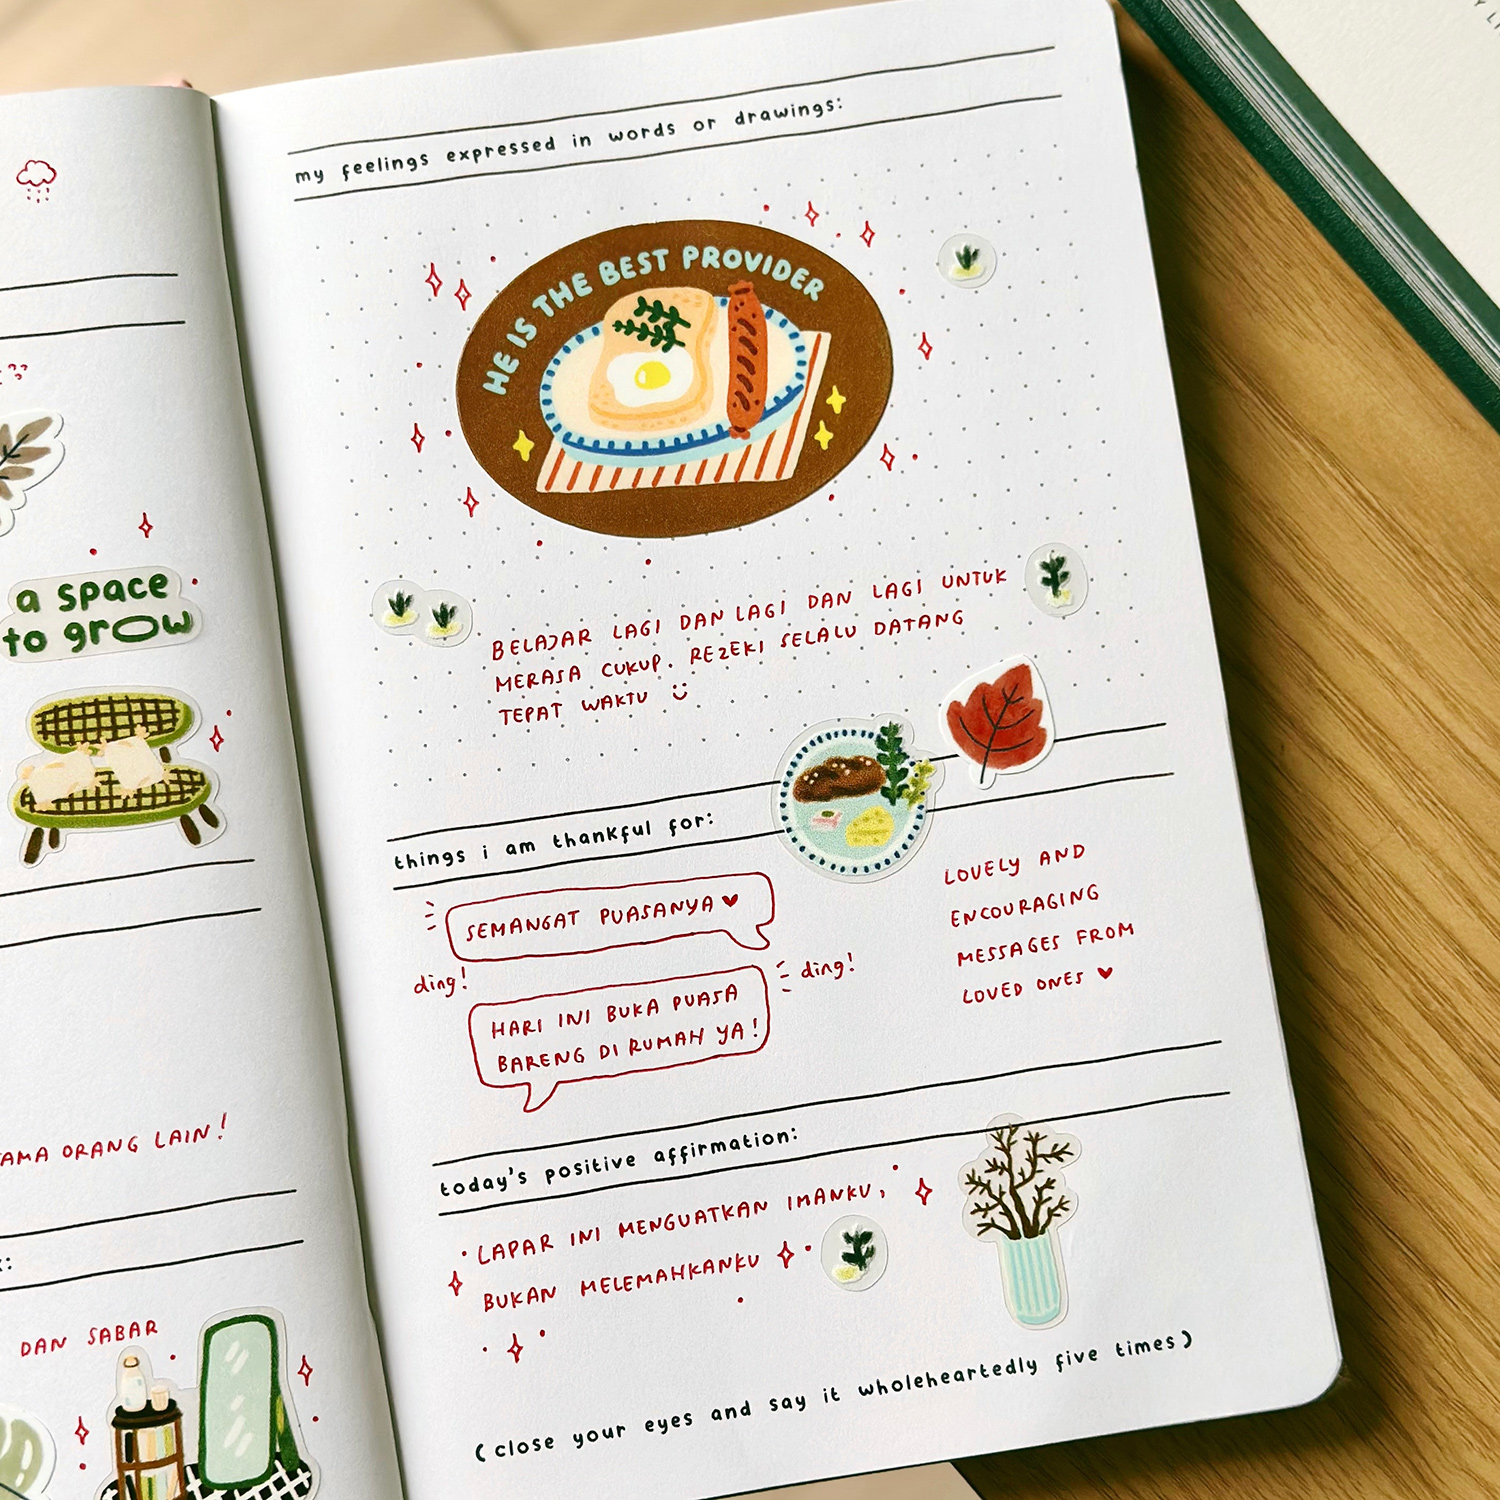 a space
to grow
AMA ORANG LAIN!
DAN SABAR
my feelings expressed in words or drawings:
HE IS THE BEST PROVIDER
BELAJAR LAGI DAN LAGI DAN LAGI UNTUK
MERASA CUKUP. REZEKI SELALU DATANG
TEPAT WAKTU
things i am thankful for:
SEMANGAT PUASANYA ♥
ding!
HARI INI BUKA PUASA
BARENG DI RUMAH YA!
ding!
LOVELY AND
ENCOURAGING
MESSAGES FROM
LOVED ONES ♥
today's positive affirmation:
LAPAR INI MENGUATKAN IMANKU,
BUKAN MELEMAHKANKU
(close your eyes and say it wholeheartedly five times)